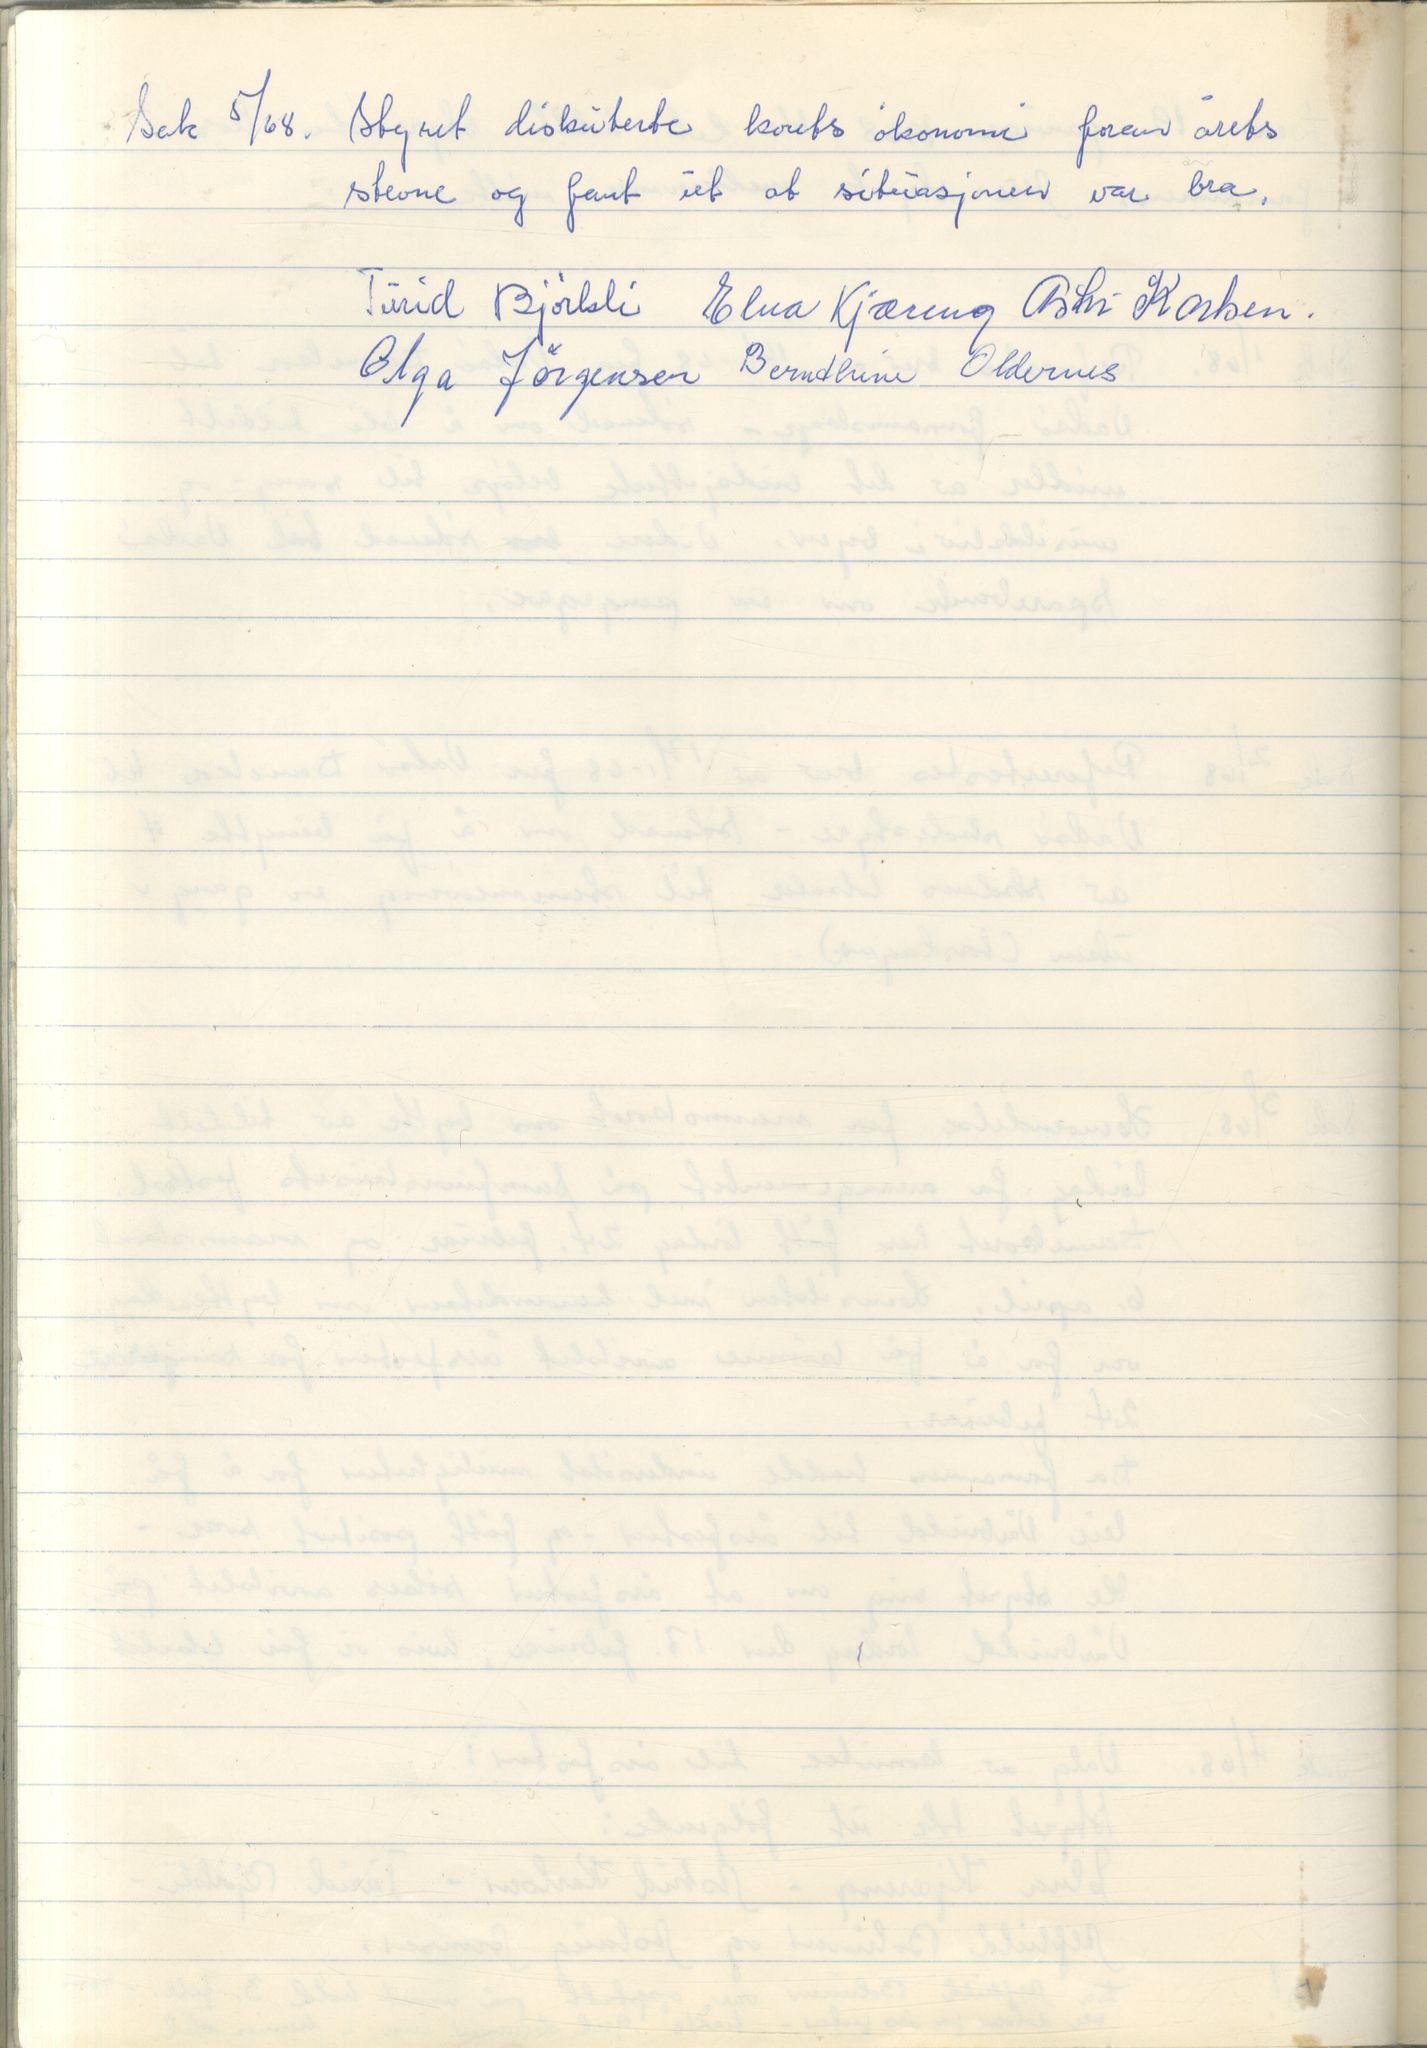 Sak 5/68. Styret diskuterte korets ökonomi foran årets
stevne og fant ut at situasjonen var bra.
Turid Björkli Elna Kjæreng Karlsen.
Olga Jörgensen Berndthine Oldernes